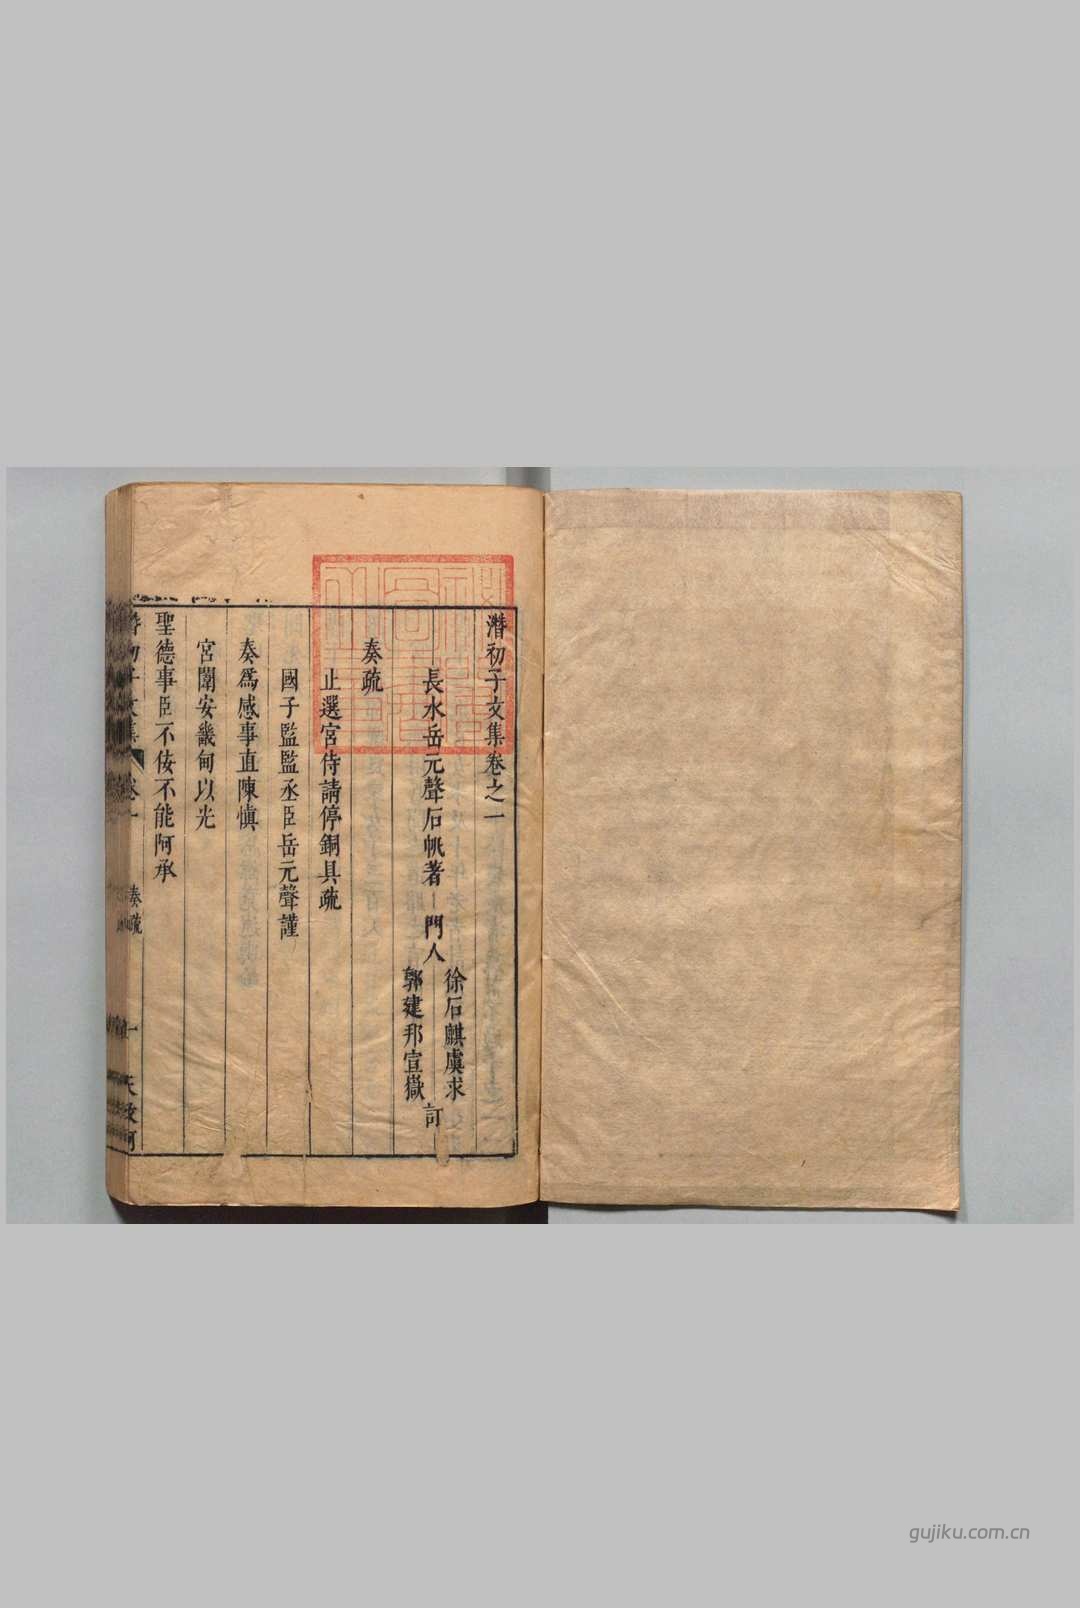 潛初子文集卷之一
長水岳元聲石帆著 門人
徐石麒虞求
郭建邦宣嶽
訂
奏疏
止選宮侍請停銅具疏
國子監監丞臣岳元聲謹
奏爲感事直陳愼
宮闈安畿甸以光
聖德事臣不佞不能阿承
潛初子文集 卷一
奏疏
一
gujiku.com.cn